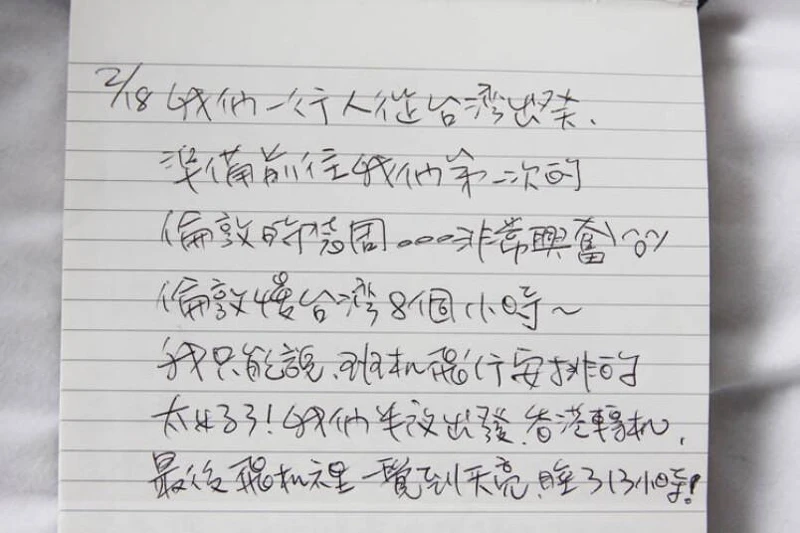 2/18 我們一行人從台灣出発、
準備前往我們第一次的
倫敦時裝周...非常興奮\^o^/
倫敦慢台灣8個小時~
我只能說、班机飛行安排的
太好了!我們半夜出發、香港轉机,
最後飛机裡一覺到天亮,睡了13小時!